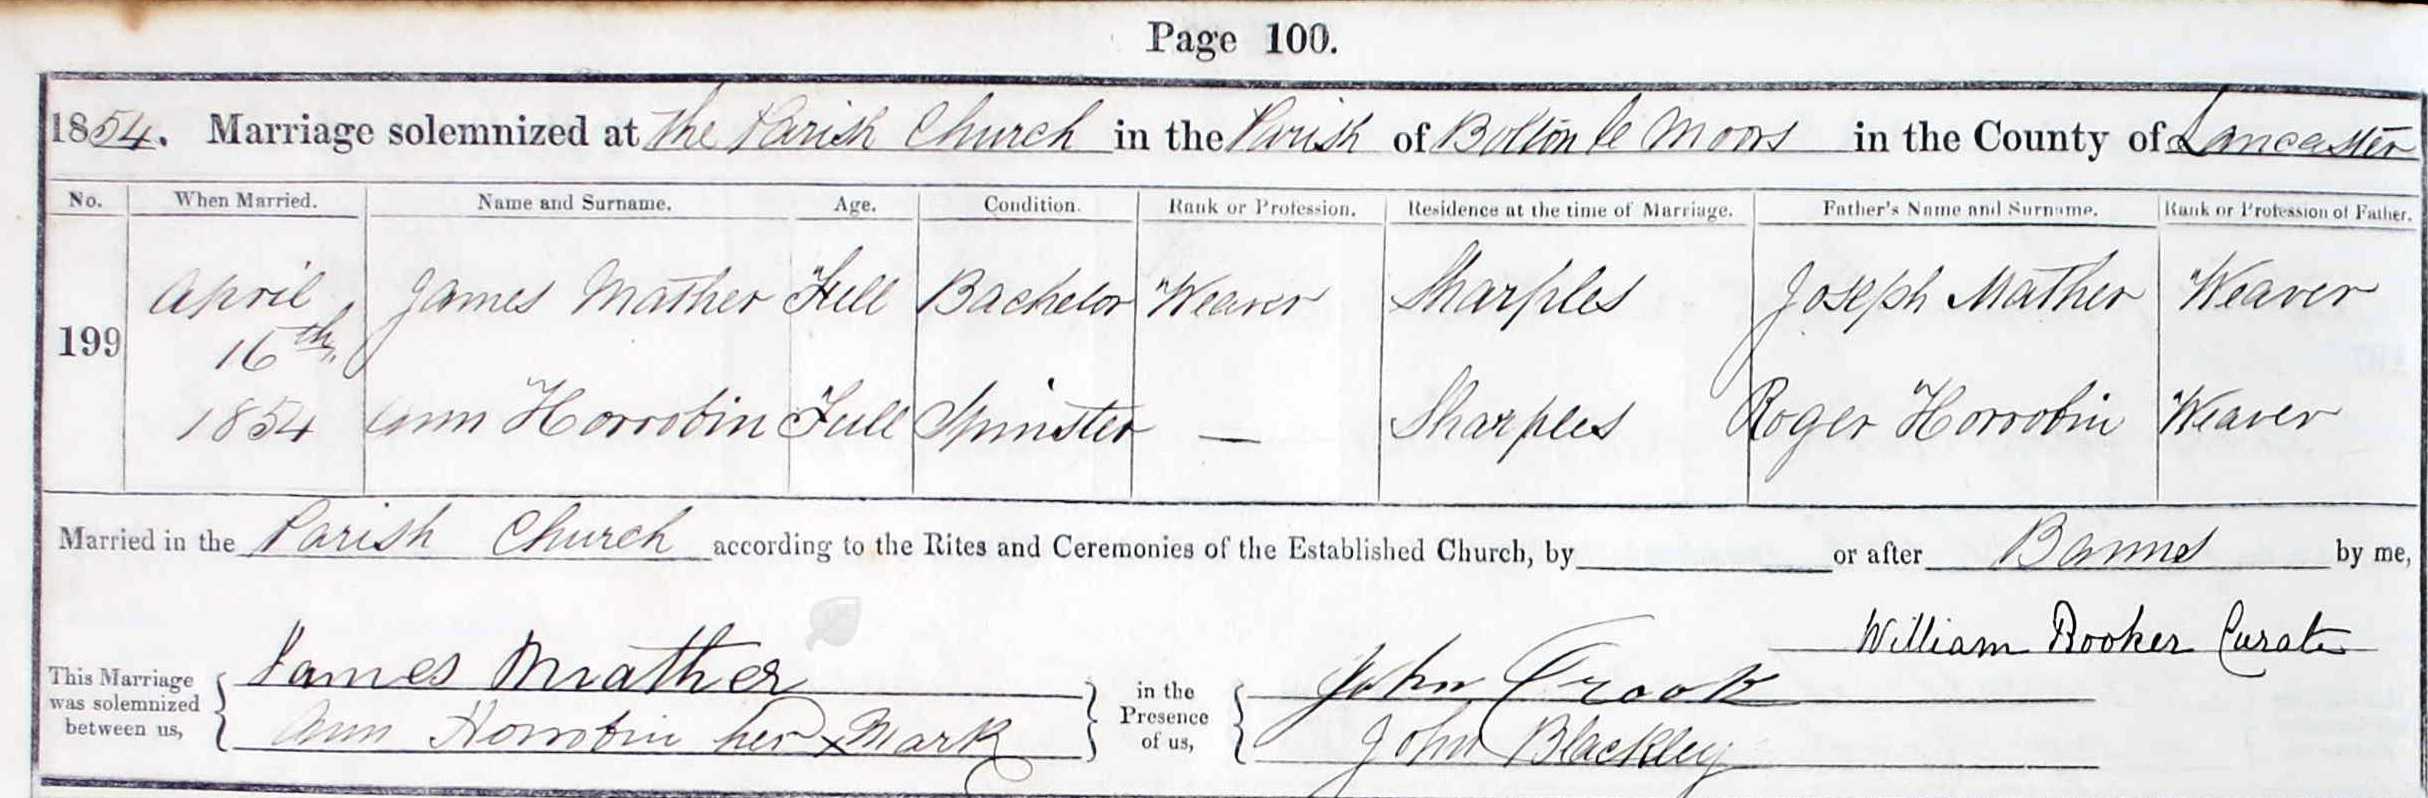 Page 100.
1854. Marriage solemnized at The Parish Church in the Parish of Bolton le Moors in the County of Lancaster
No. When Married. Name and Surname. Age. Condition. Rank or Profession. Residence at the time of Marriage. Father's Name and Surname. Rank or Profession of Father.
199 April 16th 1854
James Mather Full Bachelor Weaver Sharples Joseph Mather Weaver
Ann Horrobin Full Spinster — Sharples Roger Horrobin Weaver
Married in the Parish Church according to the Rites and Ceremonies of the Established Church, by or after Banns by me,
William Booker Curate
This Marriage was solemnized between us,
James Mather
Ann Horrobin her x Mark
in the Presence of us,
John Crook
John Blackley